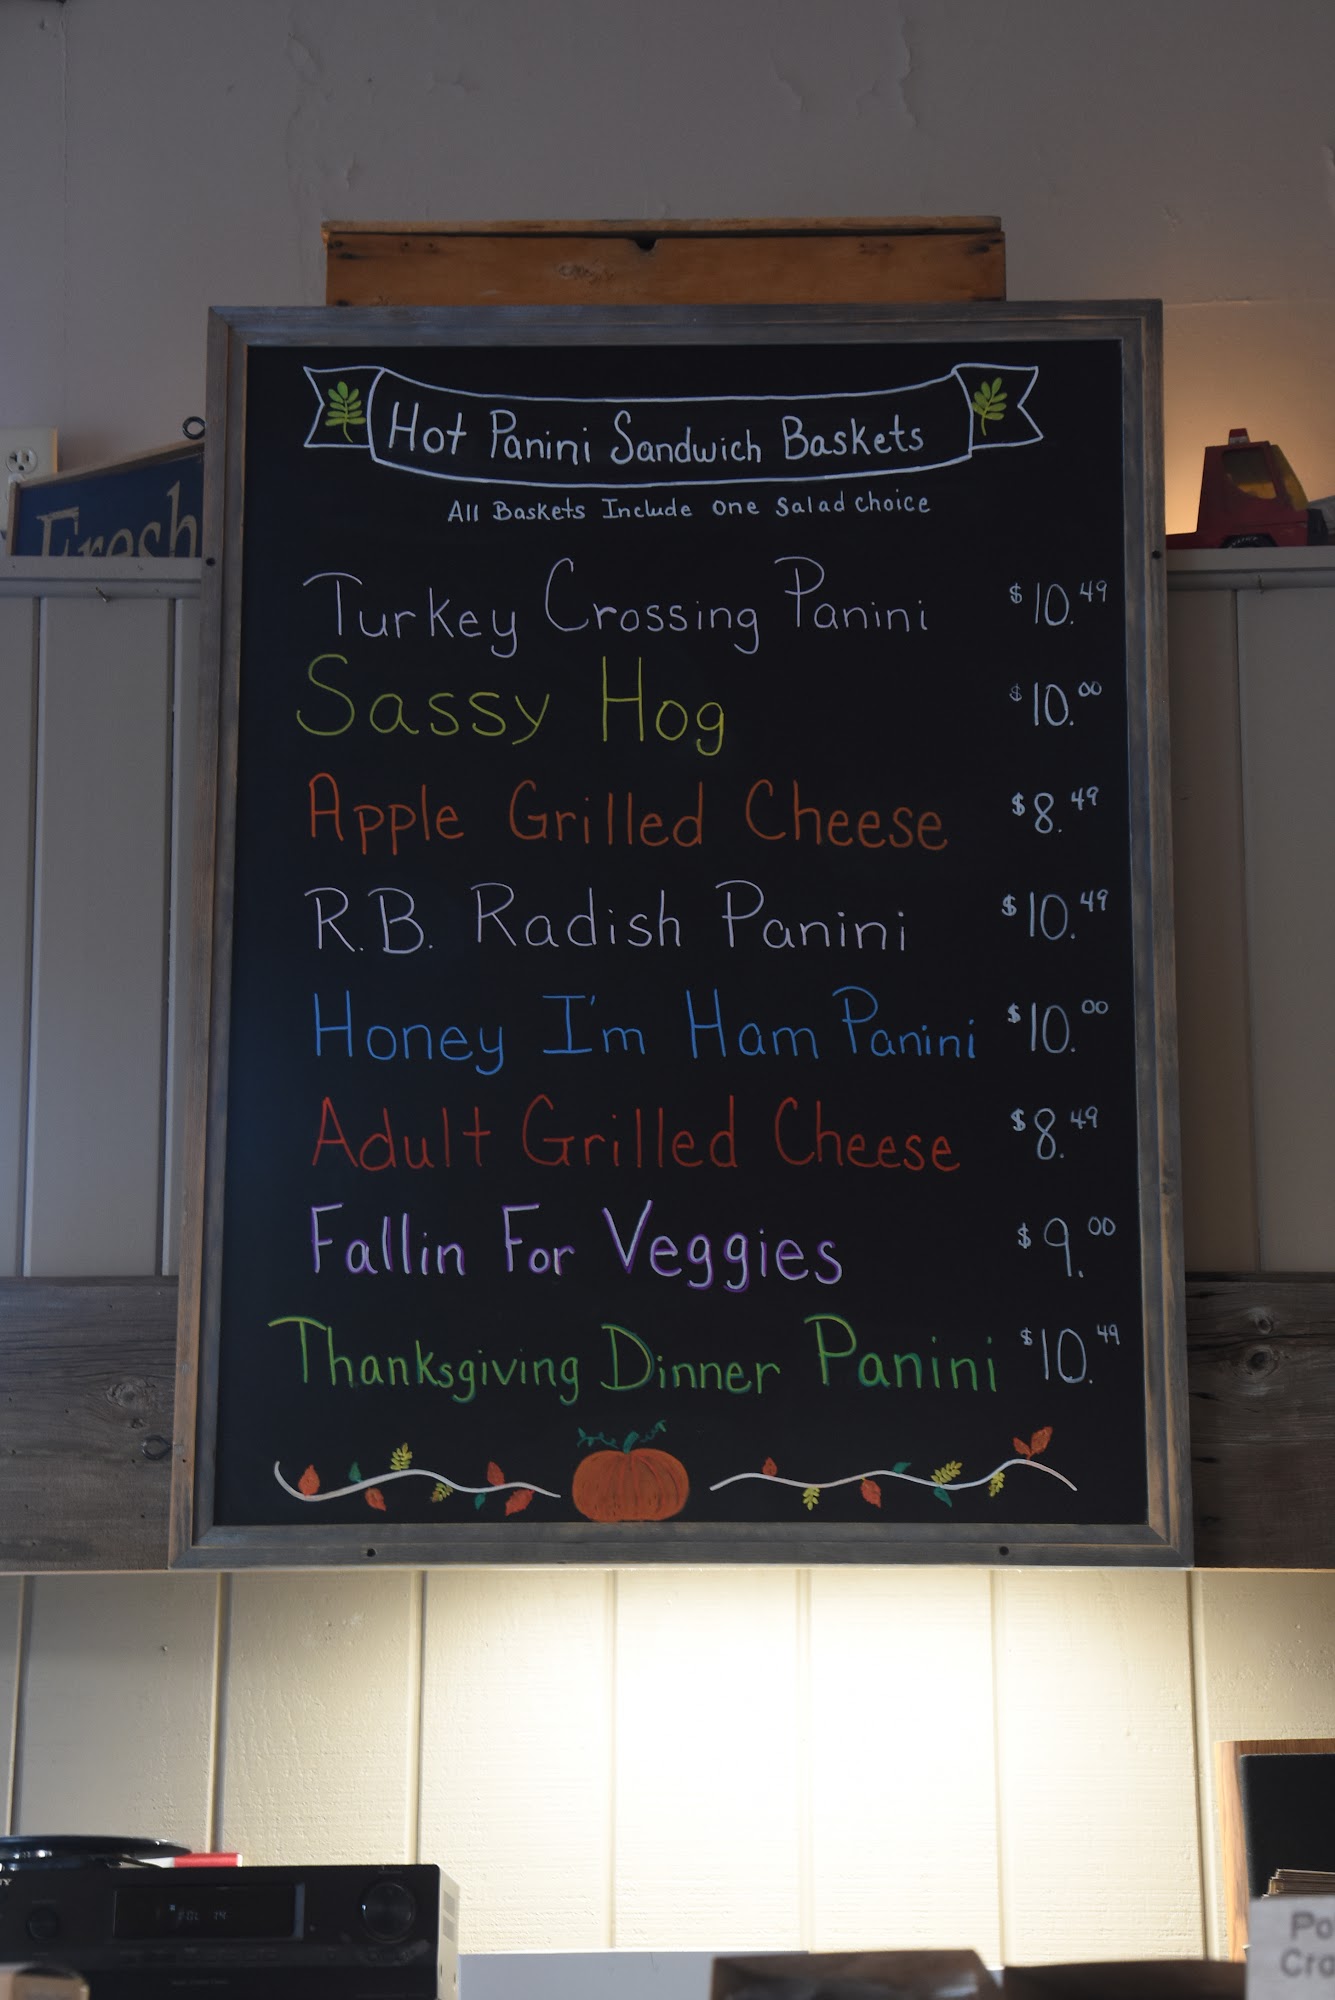 Hot Panini Sandwich Baskets
All Baskets Include one Salad choice
Fresh
Turkey Crossing Panini $10.49
Sassy Hog $10.00
Apple Grilled Cheese $8.49
R.B. Radish Panini $10.49
Honey I'm Ham Panini $10.00
Adult Grilled Cheese $8.49
Fallin For Veggies $9.00
Thanksgiving Dinner Panini $10.49
Po
Cra